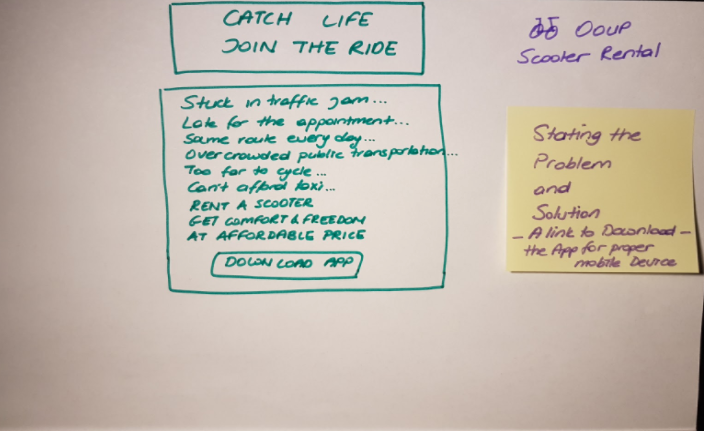 CATCH LIFE
JOIN THE RIDE
Stuck in traffic jam...
Late for the appointment...
Same route every day...
Overcrowded public transportation...
Too far to cycle...
Can't afford taxi...
RENT A SCOOTER
GET COMFORT & FREEDOM
AT AFFORDABLE PRICE
DOWNLOAD APP
Ooup
Scooter Rental
Stating the
Problem
and
Solution
- A link to Download -
the App for proper
mobile Device